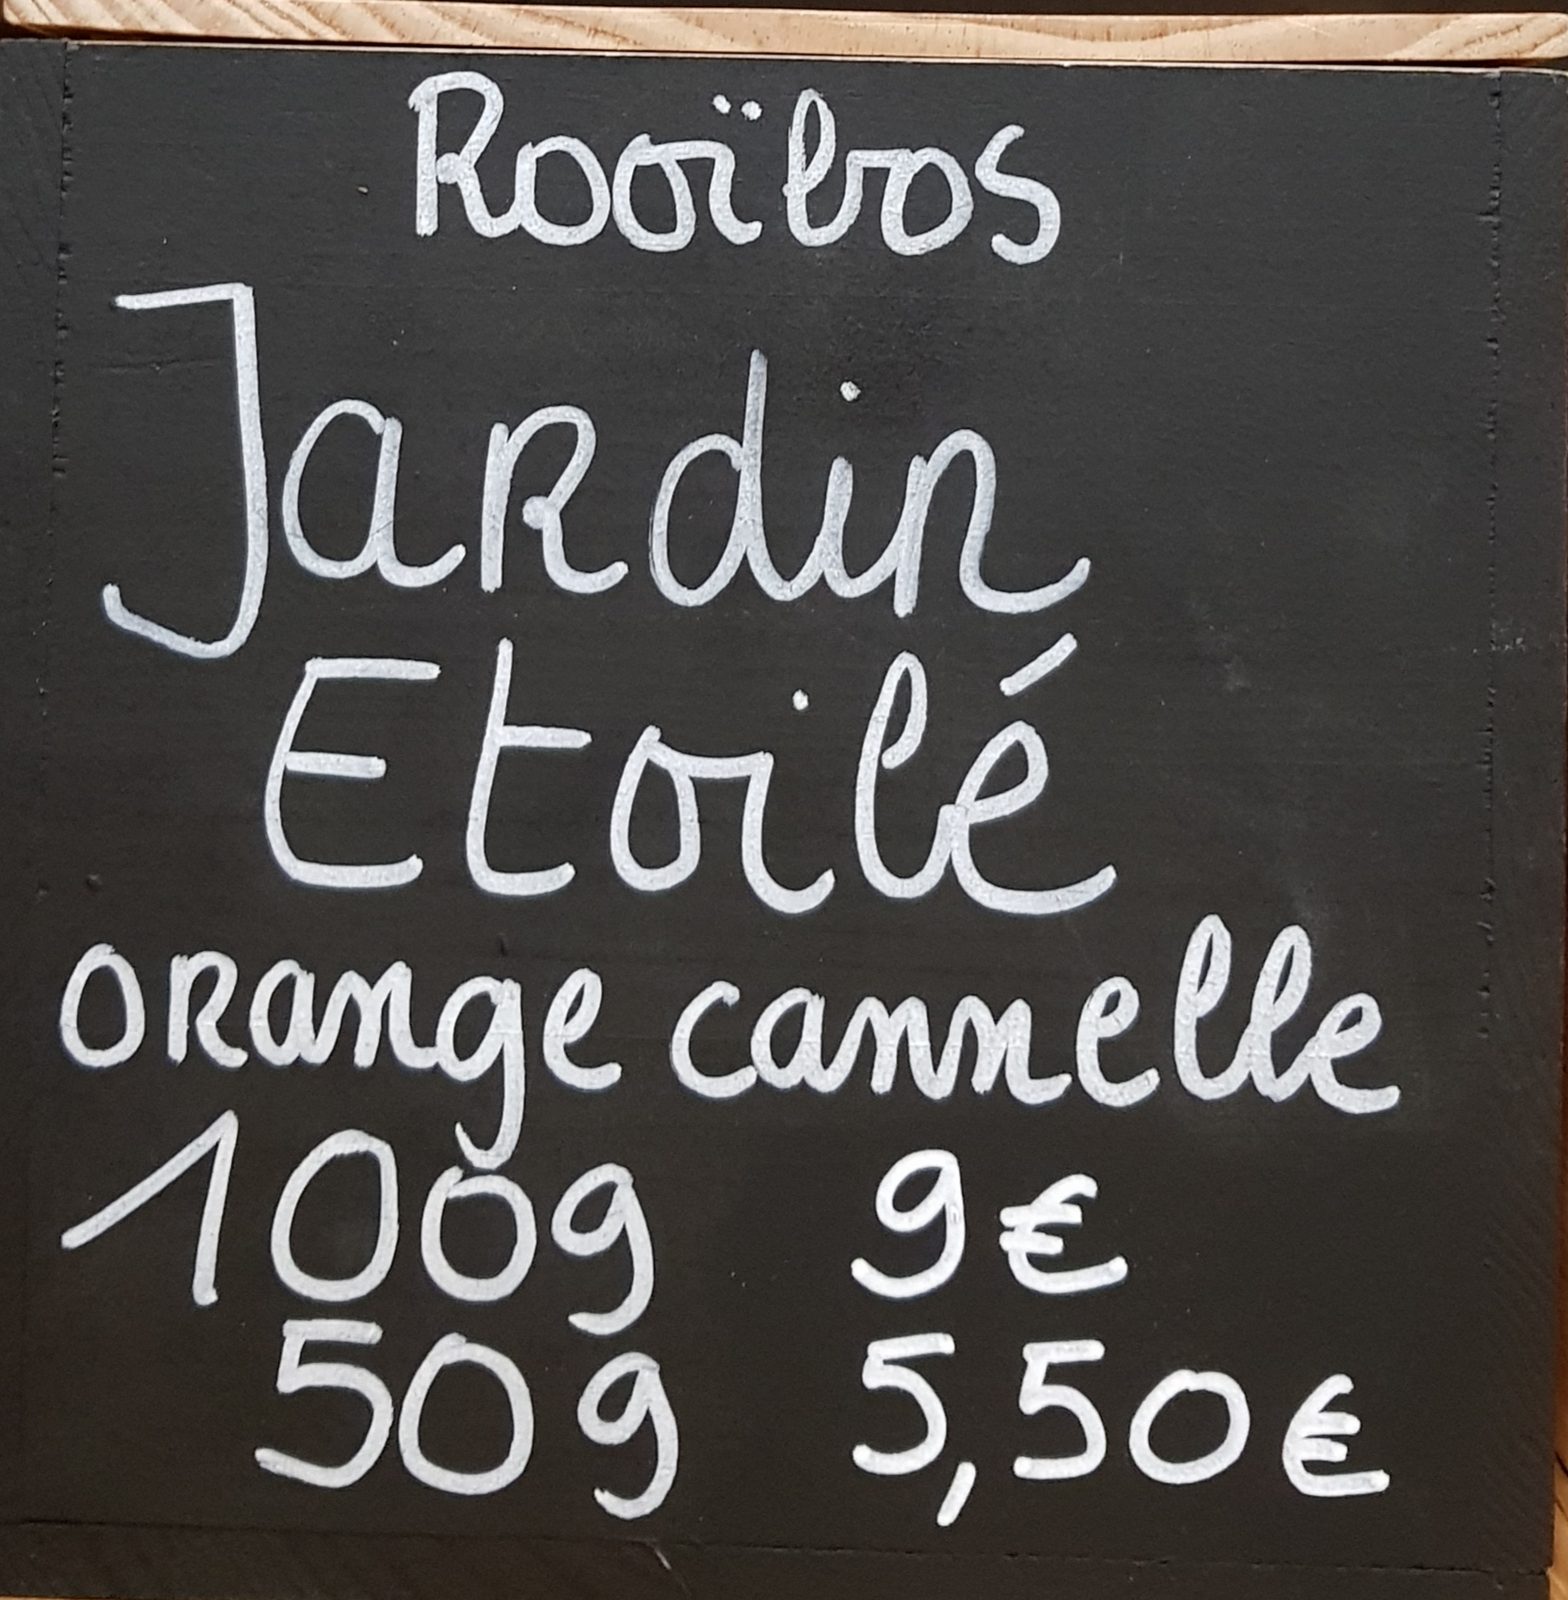 Rooïbos
Jardin
Etoilé
orange cannelle
100g 9€
50g 5,50€